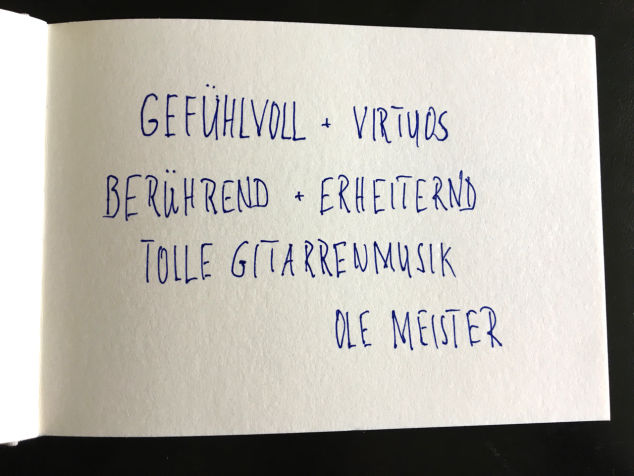 GEFÜHLVOLL + VIRTUOS
BERÜHREND + ERHEITERND
TOLLE GITARRENMUSIK
OLE MEISTER